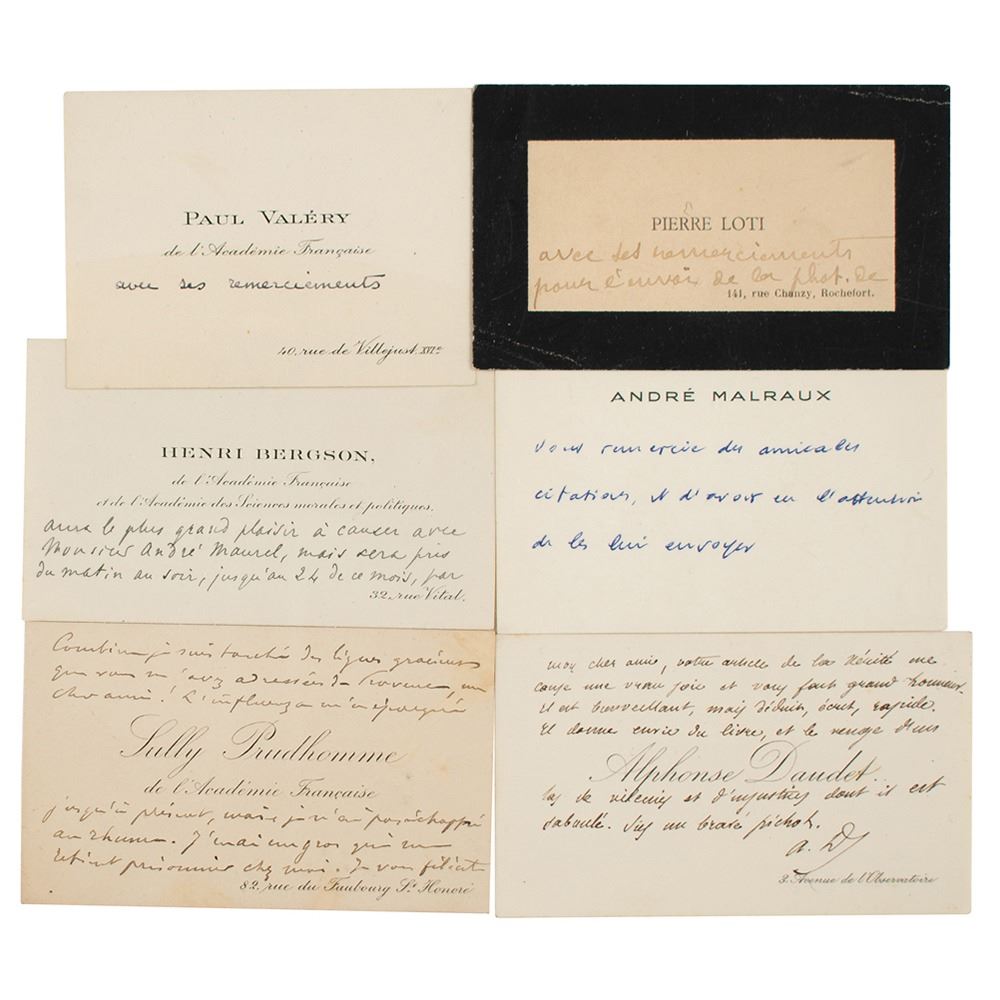 PAUL VALÉRY
de l'Académie Française
avec ses remerciements
40, rue de Villejust. XVIe
PIERRE LOTI
avec ses remerciements
pour l'envoi de la phot. de
141, rue Chanzy, Rochefort.
HENRI BERGSON,
de l'Académie Française
et de l'Académie des Sciences morales et politiques,
aura le plus grand plaisir à causer avec
Monsieur André Maurel, mais sera pris
du matin au soir, jusqu'au 24 de ce mois, par
32, rue Vital.
ANDRÉ MALRAUX
vous remercie des amicales
citations, et d'avoir eu l'attention
de les lui envoyer
Combien je suis touché des lignes gracieuses
que vous m'avez adressées de Provence, mon
cher ami! L'influenza m'a épargné
Sully Prudhomme
de l'Académie Française
jusqu'à présent, mais je n'ai pas échappé
au rhume. J'en ai un gros qui me
retient prisonnier chez moi. Je vous félicite
82, rue du Faubourg St Honoré
mon cher ami, votre article de la me
cause une vraie joie et vous fait grand honneur.
Il est bienveillant, mais déduit, écrit, rapide.
Il donne envie du livre, et le venge d'un
Alphonse Daudet
tas de vilenies et d'injustices dont il est
saboulé. pichot.
A. D
3, Avenue de l'Observatoire